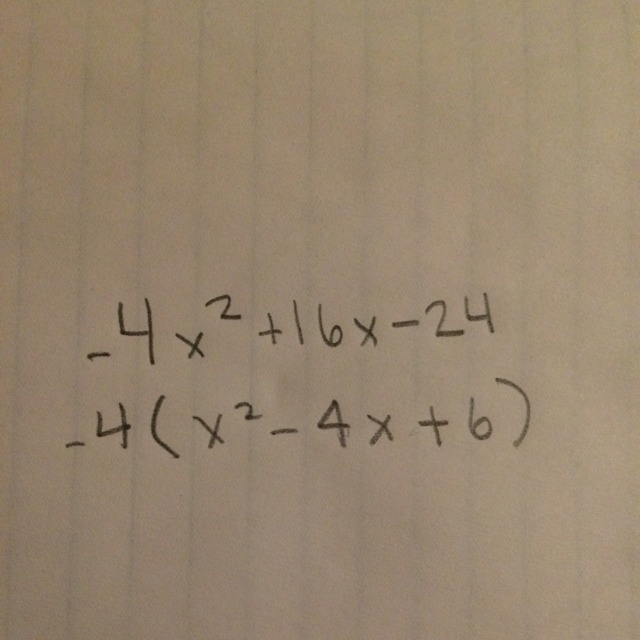 -4x²+16x-24
-4(x²-4x+6)